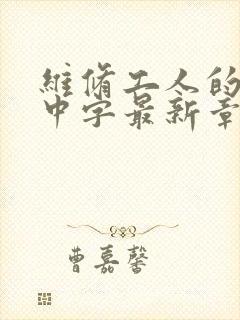 維脩工人的
中字最新章
曹嘉馨